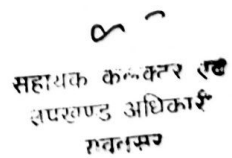 सहायक कलक्टर एवं
उपखण्ड अधिकारी
रावतसर